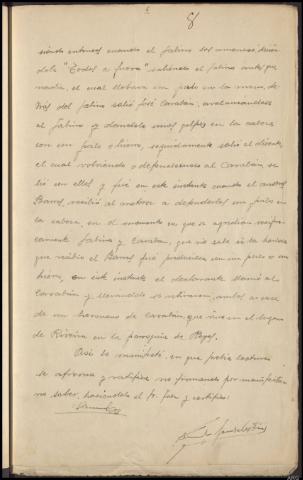 8
siendo entonces cuando el Sabino les amenazó dicien
doles "Todos a fuera" saliendo el Sabino antes que
nadie, el cual llevaba un palo en la mano, de
trás del Sabino salió José Carabán, avalanzandose
al Sabino y dandole unos golpes en la cabeza
con un palo o hierro, seguidamente salió el dicente
el cual volviendo a defenderse al Carabán, se
lió en ellos y fué en este instante cuando el
Barros, recibió al meterse a defenderlos un palo en
la cabeza, en el momento en que se agredian
Sabino y Carabán, que no sabe si la herida
que recibió el Barros fué producida con un palo o un
hierro, en este instante el declarante llamó al
Carabán y llevandole se retiraron, ambos a casa
de un hermano de Carabán, que vive en el lugar
de Riveira en la parroquia de
Asi lo manifestó, en que previa lectura
se afirma y ratifica no firmando por manifestar
no saber, haciendolo el Sr. Juez y certifico.